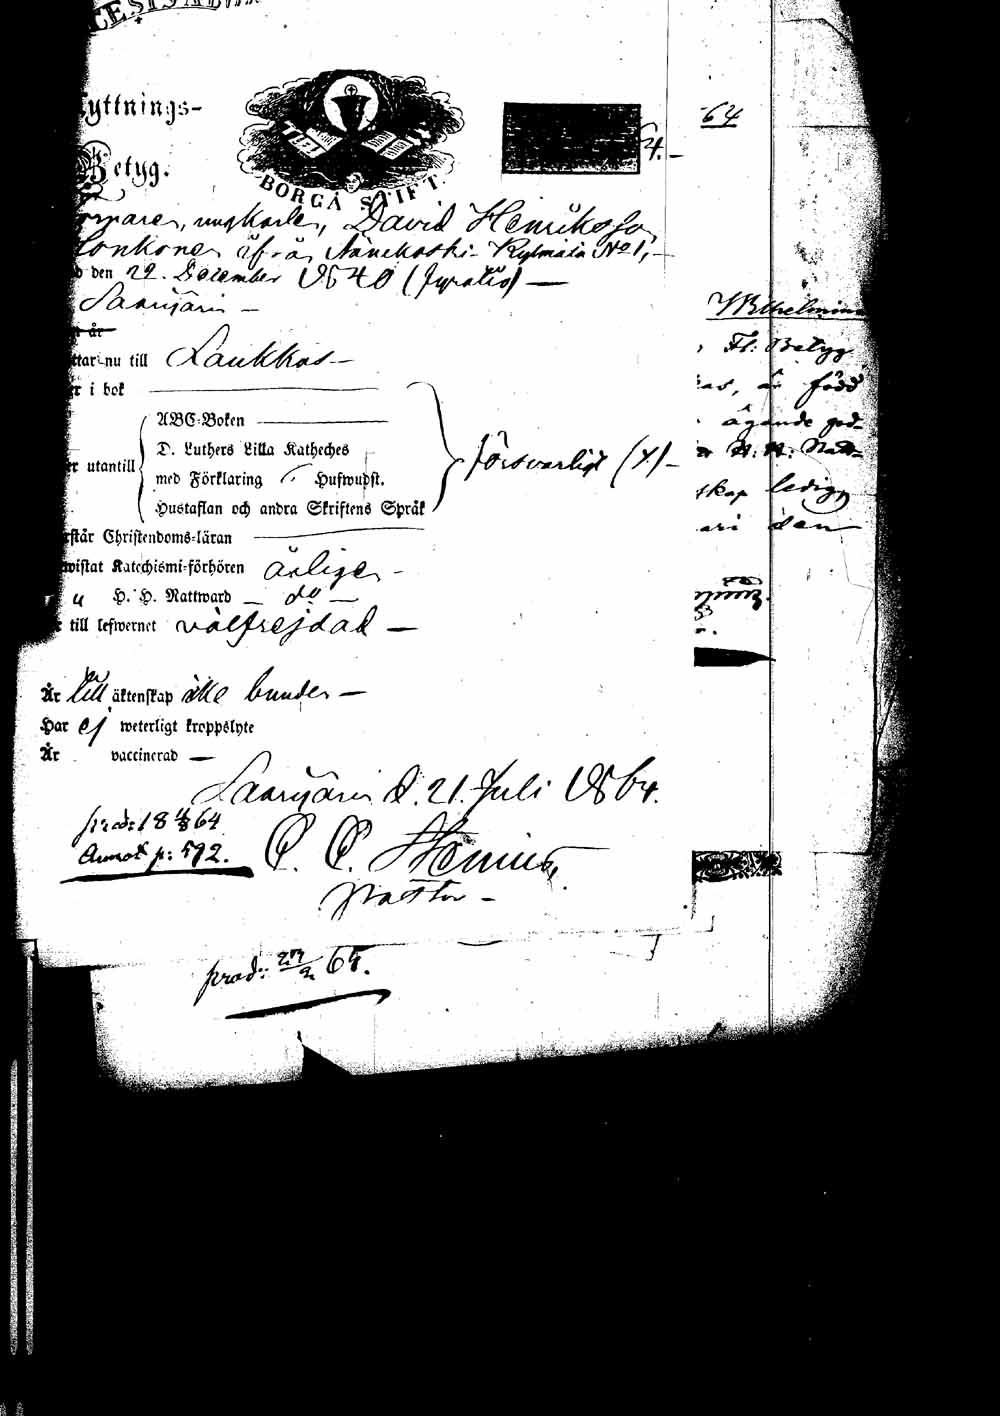 yttnings-
Betyg.
BORGÅ STIFT.
4.
ungkarlen, David Henriksson
Honkonen ifrån Äänekoski Kylmälä No 1,
d den 22. December 1840 (fyratio) —
Saarijärvi —
år
ttar nu till Laukkas —
er i bok
er utantill
ABC-Boken
D. Luthers Lilla Katheches
med Förklaring Huswupst.
Hustaflan och andra Skriftens Språk
försvarligt (4) —
rstår Christendoms-läran
wistat Katechismi-förhören årligen —
H. H. Nattward — do —
till lefwernet välfrejdad —
Är till äktenskap icke bunden —
Har ej weterligt kroppslyte
Är vaccinerad —
Saarijärvi d. 21. Juli 1864.
Annot p: 592.
Pastor —
prod: 64.
64
Wilhelmina
Fl: Betyg
är född
ägande god-
H. H. Natt-
skap ledig,
den